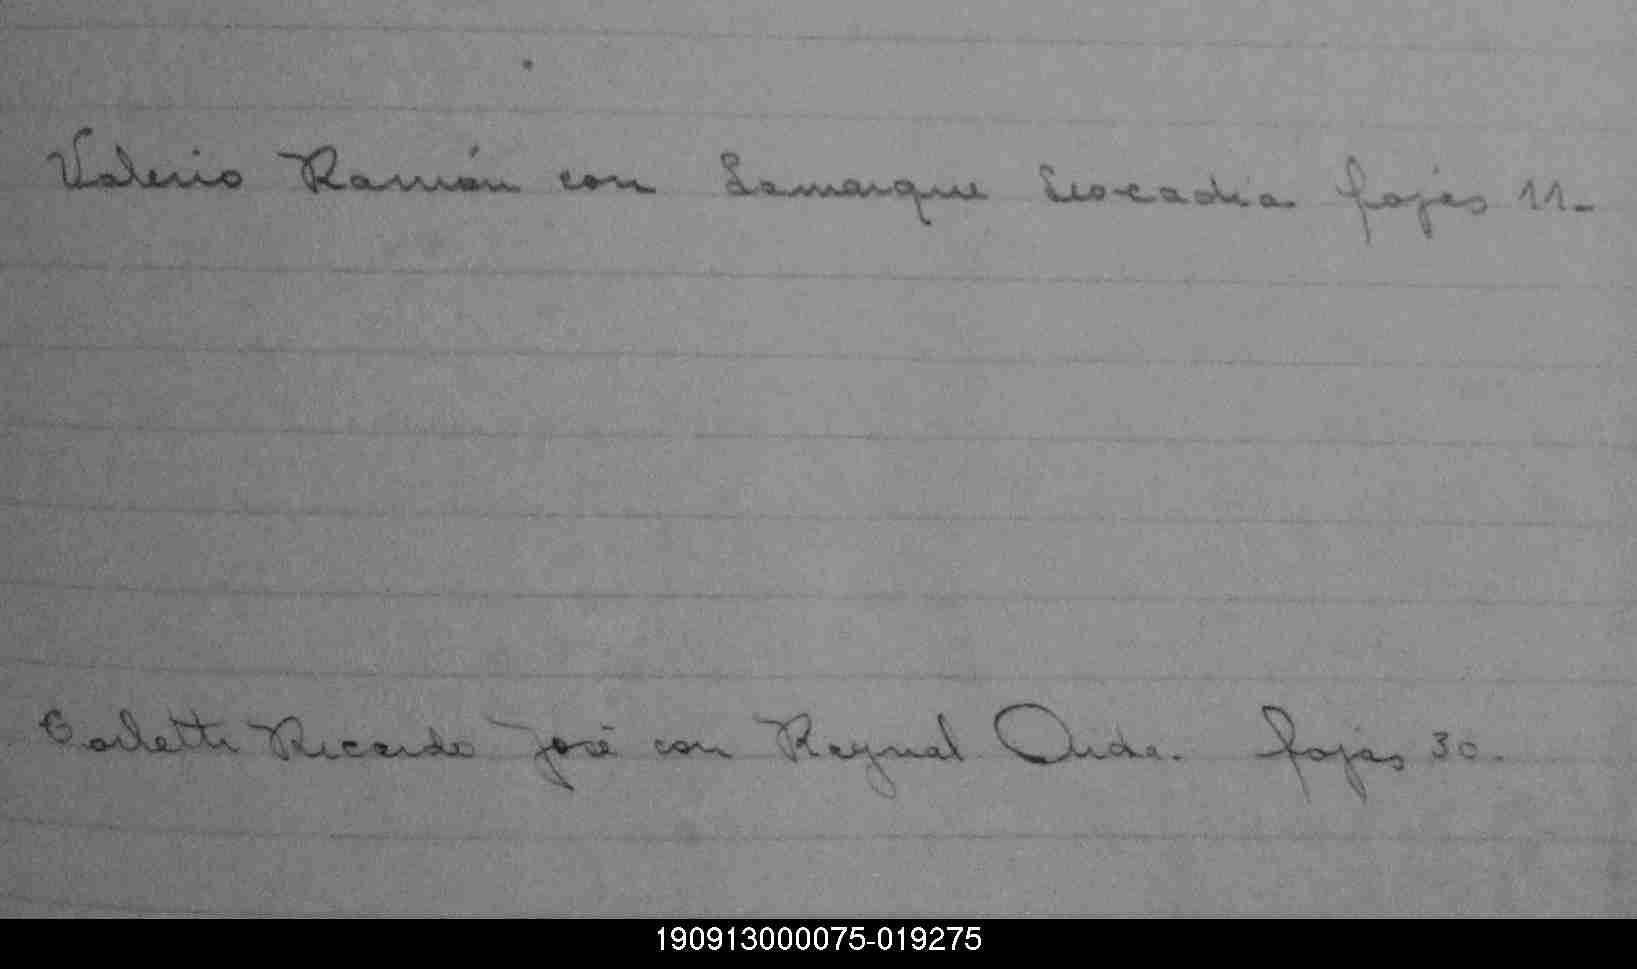 Valerio Ramón con Lamarque Leocadia fojas 11-
Carletti Ricardo José con Raynal Ouida. fojas 30.
190913000075-019275